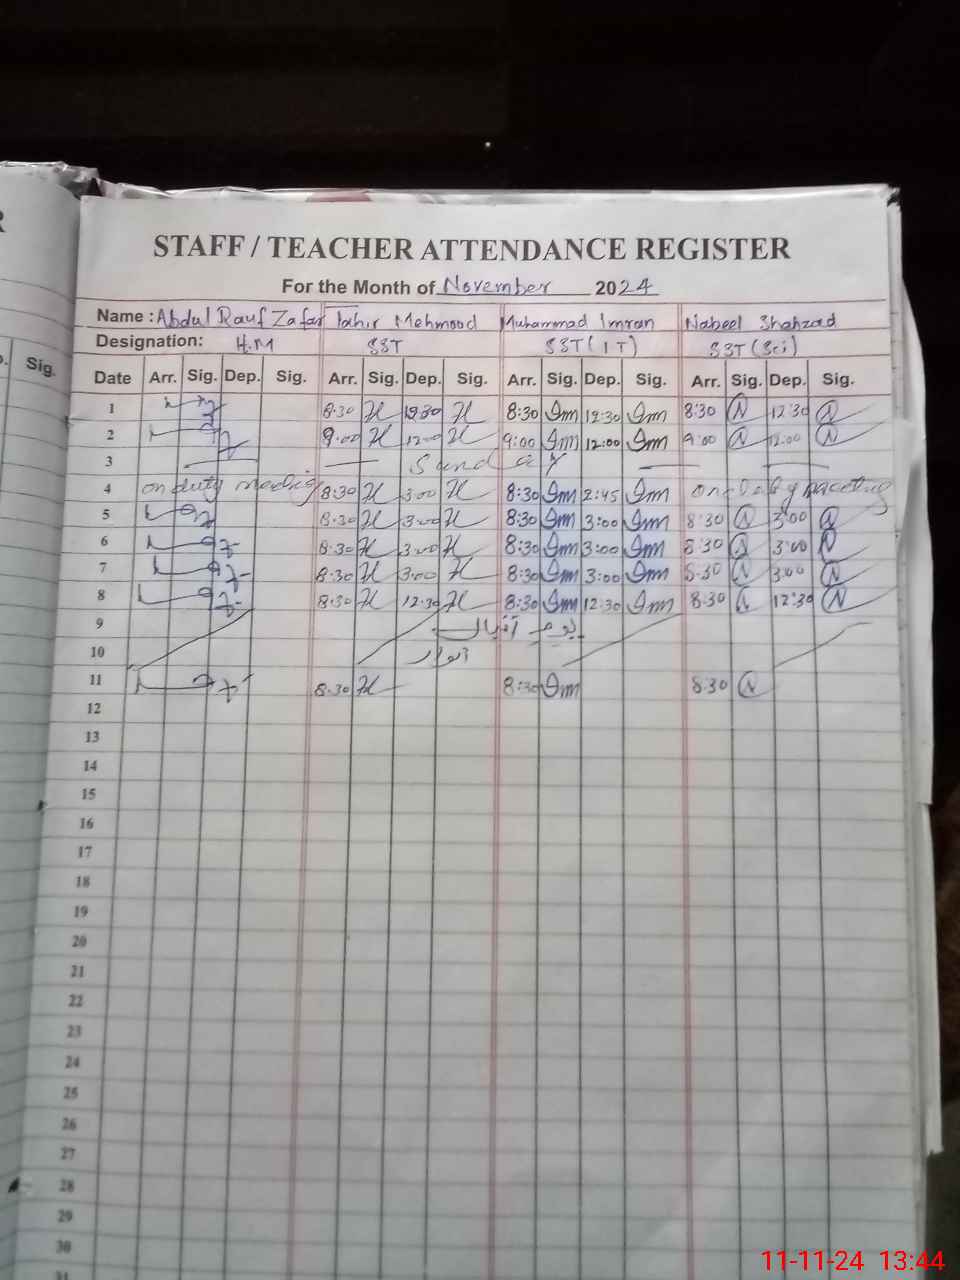 R
STAFF / TEACHER ATTENDANCE REGISTER
For the Month of November 2024
Name : Abdul Rauf Zafar Tahir Mehmood Muhammad Imran Nabeel Shahzad
Designation: H.M SST SST (IT) SST (Sci)
Sig. Date Arr. Sig. Dep. Sig. Arr. Sig. Dep. Sig. Arr. Sig. Dep. Sig. Arr. Sig. Dep. Sig.
1 8:30 12:30 8:30 Im 12:30 Im 8:30 N 12:30 N
2 9:00 12:00 9:00 Im 12:00 Im 9:00 N 12:00 N
3 Sunday
4 on duty 8:30 3:00 8:30 Im 2:45 Im on
5 8:30 3:00 8:30 Im 3:00 Im 8:30 N 3:00 N
6 8:30 3:00 8:30 Im 3:00 Im 8:30 N 3:00 N
7 8:30 3:00 8:30 Im 3:00 Im 8:30 N 3:00 N
8 8:30 12:30 8:30 Im 12:30 Im 8:30 N 12:30 N
9 یوم اقبال
10 اتوار
11 8:30 8:30 Im 8:30 N
12
13
14
15
16
17
18
19
20
21
22
23
24
25
26
27
28
29
30
31
11-11-24 13:44